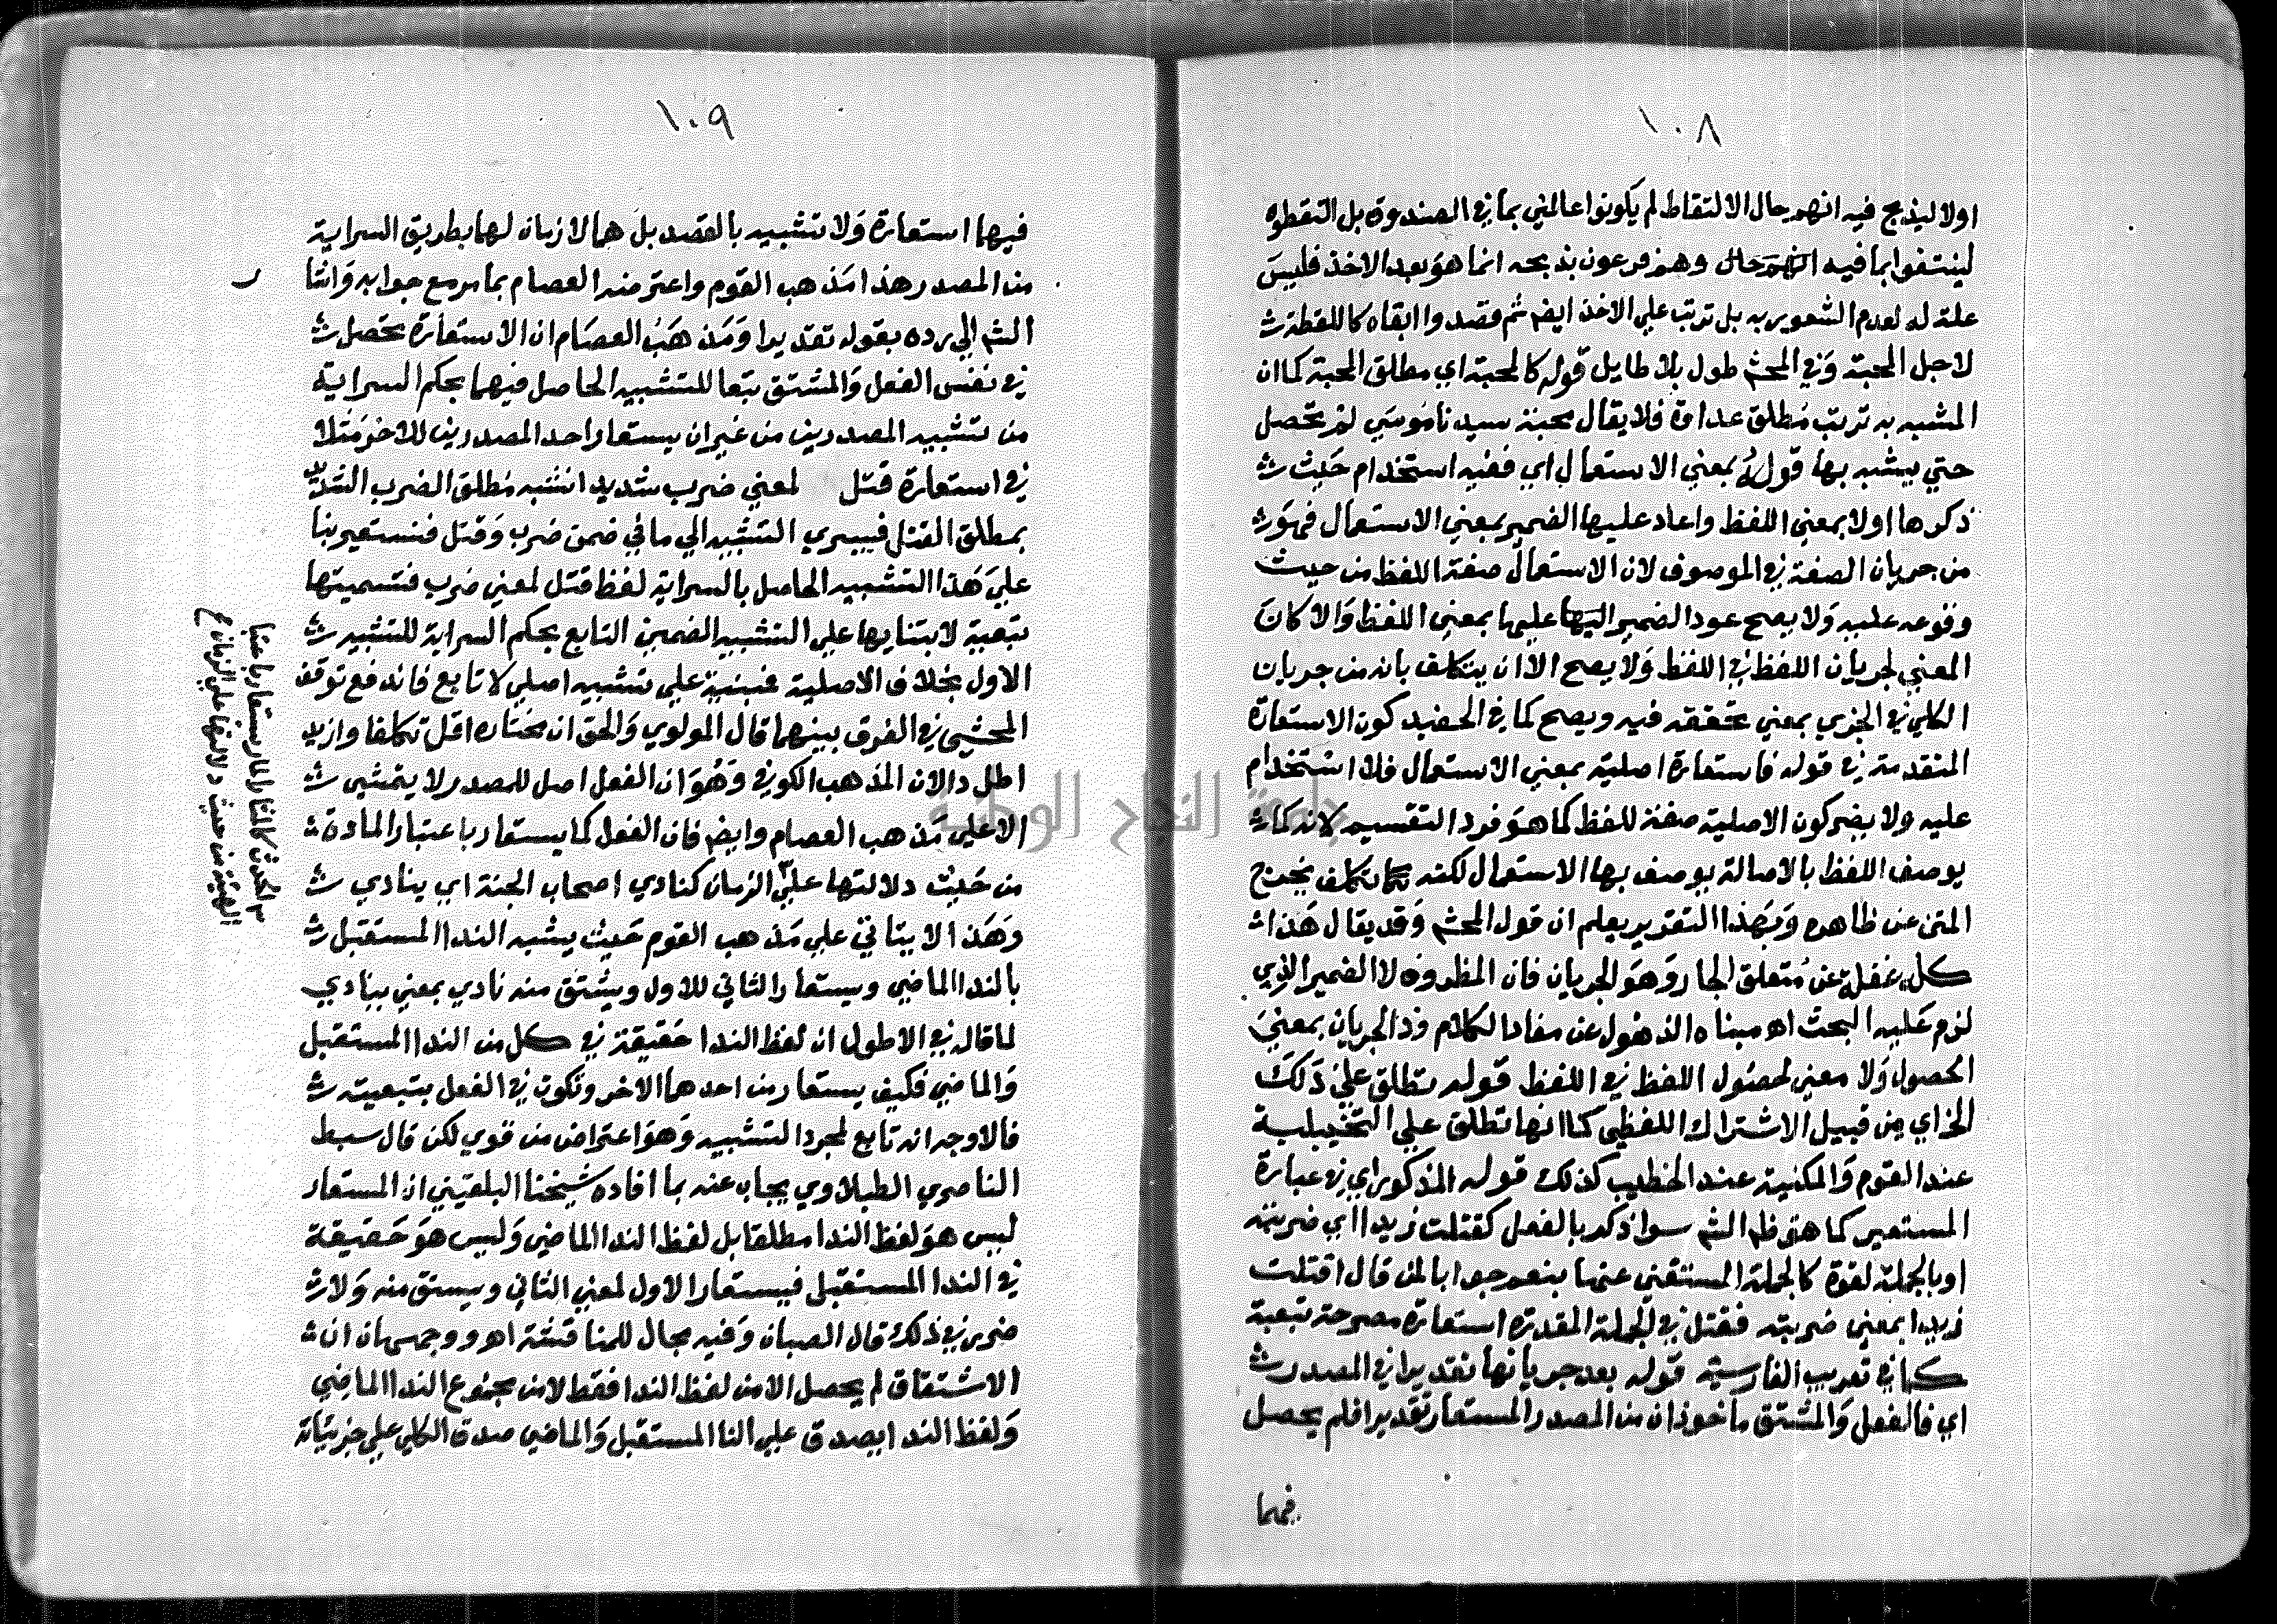 ١٠٨
اولا ليذبح فيه انهم حال الالتقاط لم يكونوا عالمين بما في الصندوق بل التقطوه
لينتفعوا بما فيه وهم فرعون بذبحه انما هو بعد الاخذ فليس
علة له لعدم الشعور به بل ترتب علي الاخذ ايضا ثم قصدوا ابقاه كاللقطة
لاجل المحبة وفي المحشي طول بلا طايل قوله كالمحبة اي مطلق المحبة كما ان
المشبه به ترتب مطلق عداوة فلا يقال محبة سيدنا موسي لم تحصل
حتي يشبه بها قوله بمعني الاستعمال اي ففيه استخدام حيث
ذكرها اولا بمعني اللفظ واعاد عليها الضمير بمعني الاستعمال فهو
من جريان الصفة في الموصوف لان الاستعمال صفة اللفظ من حيث
وقوعه عليه ولا يصح عود الضمير اليها عليها بمعني اللفظ والا كان
المعني لجريان اللفظ في اللفظ ولا يصح الا ان يتكلف بانه من جريان
الكلي في الجزي بمعني تحققه فيه ويصح كما في الحفيد كون الاستعارة
المتقدمة في قوله فاستعارة اصلية بمعني الاستعمال فلا استخدام
عليه ولا يضر كون الاصلية صفة للفظ كما هو فرد التقسيم لانه كما
يوصف اللفظ بالاصالة يوصف بها الاستعمال لكنه تكلف يخرج
المتن عن ظاهره وبهذا التقرير يعلم ان قول المحشي وقد يقال هذا
كله غفلة عن متعلق الجار وهو الجريان فان المظروف لا الضمير الذي
لزم عليه البحث اه مبناه الذهول عن مفاد الكلام وذ الجريان بمعني
الحصول ولا معني لحصول اللفظ في اللفظ قوله تطلق علي ذلك
الخ اي من قبيل الاشتراك اللفظي كما انها تطلق علي التخييلية
عند القوم والمكنية عند الخطيب كذلك قوله المذكور اي في عبارة
المستعير كما هو ظم الشم سوا ذكر بالفعل كقتلت زيدا اي ضربته
او بالجملة لقوة كالجملة المستغني عنها بنعم جوابا لمن قال اقتلت
زيدا بمعني ضربته فقتل في الجملة المقدرة استعارة مصرحة تبعية
كما في تعريب الفارسية قوله بعد جريانها تقديرا في المصدر
اي فالفعل والمشتق ماخوذان من المصدر المستعار تقديرا فلم يحصل
فيهما
١٠٩
فيهما استعارة ولا تشبيه بالقصد بل هما لازمان لها بطريق السراية
من المصدر هذا مذهب القوم واعترضه العصام بما مر مع جوابه واشا
الشم الي رده بقوله تقديرا ومذهب العصام ان الاستعارة تحصل
في نفس الفعل والمشتق تبعا للتشبيه الحاصل فيهما بحكم السراية
من تشبيه المصدرين من غير ان يستعار احد المصدرين للاخر مثلا
في استعارة قتل لمعني ضرب شديدا نشبه مطلق الضرب الشديد
بمطلق القتل فيسري التشبيه الي ما في ضمن ضرب وقتل فنستعير بنا
علي هذا التشبيه الحاصل بالسراية لفظ قتل لمعني ضرب فتسميتها
تبعية لابتنايها علي التشبيه الضمني التابع بحكم السراية للتشبيه
الاول بخلاف الاصلية فمبنية علي تشبيه اصلي لا تابع فاندفع توقف
المحشي في الفرق بينهما قال المولوي والحق ان مختاره اقل تكلفا وازيد
اطرادا لان المذهب الكوفي وهو ان الفعل اصل للمصدر لا يتمشي
الا علي مذهب العصام وايضا فان الفعل كما يستعار باعتبار المادة
من حيث دلالتها علي الزمان كنادي اصحاب الجنة اي ينادي
وهذا لا يتاتي علي مذهب القوم حيث يشبه الندا المستقبل
بالندا الماضي ويستعار الثاني للاول ويشتق منه نادي بمعني ينادي
لما قاله في الاطول ان لفظ الندا حقيقة في كل من الندا المستقبل
والماضي فكيف يستعار من احدهما الاخر وتكون في الفعل بتبعيته
فالاوجه انه تابع لمجرد التشبيه وهو اعتراض من قوي لكن قال سبط
الناصري الطبلاوي يجاب عنه بما افاده شيخنا البلقيني ان المستعار
ليس هو لفظ الندا مطلقا بل لفظ الندا الماضي وليس هو حقيقة
في الندا المستقبل فيستعار الاول لمعني الثاني ويستق منه ولا
ضرر في ذلك قال الصبان وفيه مجال للمناقشة اه ووجهه ان
الاشتقاق لم يحصل الا من لفظ الندا فقط لا من مجموع الندا الماضي
ولفظ الندا يصدق علي الندا المستقبل والماضي صدق الكلي علي جزئياته
الهيئة من حيث دلالتها علي الزمان
جامعة النجاح الوطنية